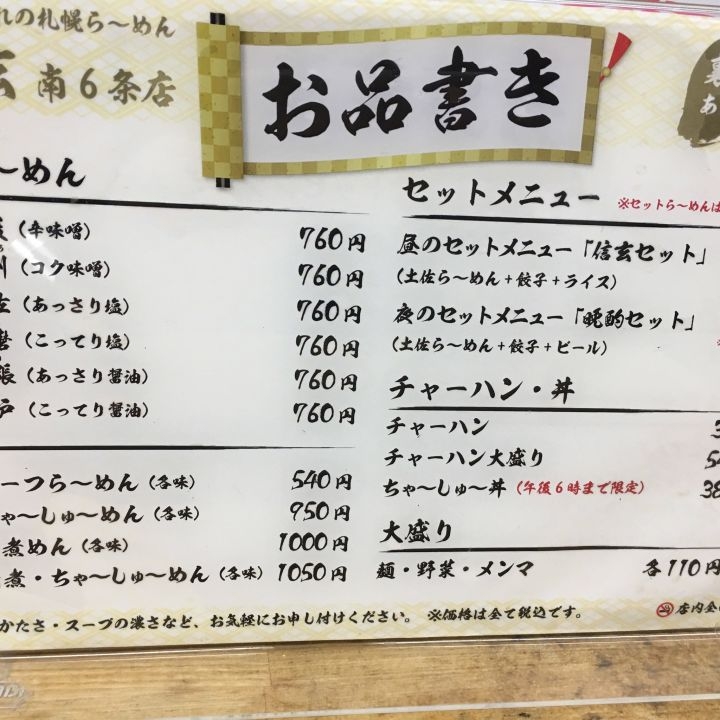 れの札幌ら〜めん
玄 南6条店
お品書き
裏
あ
〜めん
(辛味噌) 760円
州 (コク味噌) 760円
佐 (あっさり塩) 760円
(こってり塩) 760円
張 (あっさり醤油) 760円
戸 (こってり醤油) 760円
ーつら〜めん (各味) 540円
ゃ〜しゅ〜めん (各味) 950円
煮めん (各味) 1000円
煮・ちゃ〜しゅ〜めん (各味) 1050円
セットメニュー ※セットら〜めんは
昼のセットメニュー「信玄セット」
(土佐ら〜めん+餃子+ライス)
夜のセットメニュー「晩酌セット」
(土佐ら〜めん+餃子+ビール)
チャーハン・丼
チャーハン
チャーハン大盛り
ちゃ〜しゅ〜丼 (午後6時まで限定) 38
大盛り
麺・野菜・メンマ 各110円
かたさ・スープの濃さなど、お気軽にお申し付けください。 ※価格は全て税込です。
店内全